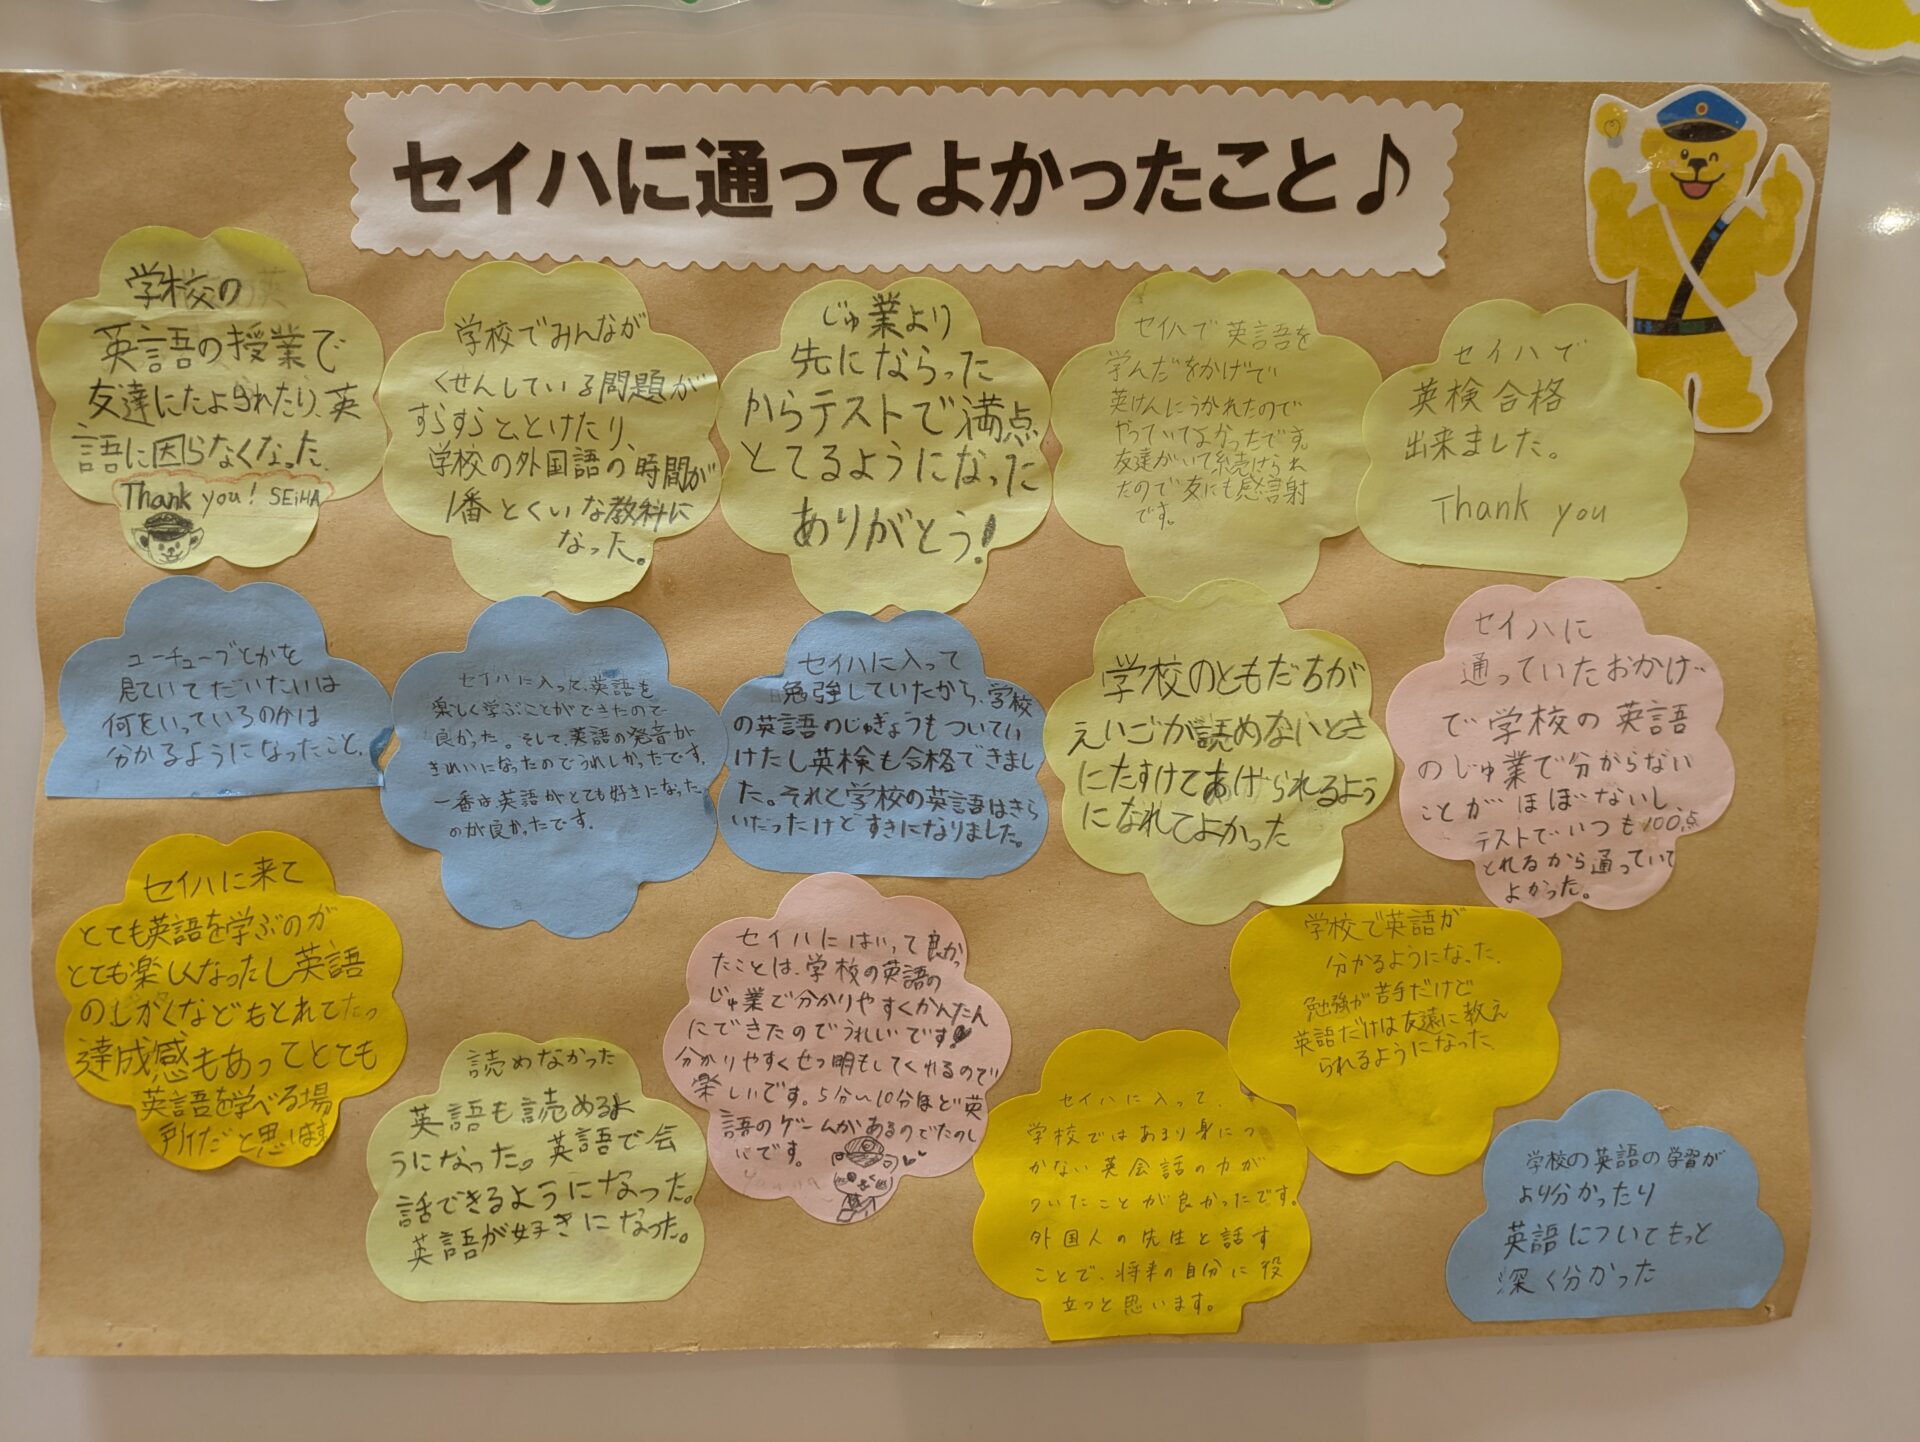 セイハに通ってよかったこと♪
学校の
英語の授業で
友達にたよられたり、英
語に困らなくなった。
Thank you! SEiHA
学校でみんなが
くせんしている問題が
すらすらととけたり、
学校の外国語の時間が
1番とくいな教科に
なった。
じゅ業より
先にならった
からテストで満点
とてるようになった
ありがとう!
セイハで英語を
学んだをかげで
英けんにうかれたので
やっていてよかったです。
友達がいて続けられ
たので友にも感謝
です。
セイハで
英検合格
出来ました。
Thank you
ユーチューブとかを
見ていてだいたいは
何をいっているのかは
分かるようになったこと、
セイハに入って、英語を
楽しく学ぶことができたので
良かった。そして、英語の発音が
きれいになったのでうれしかったです。
一番は英語がとても好きになった
のが良かったです。
セイハに入って
勉強していたから、学校
の英語のじゅぎょうもついてい
けたし英検も合格できまし
た。それと学校の英語はきら
いだったけどすきになりました。
学校のともだちが
えいごが読めないとき
にたすけてあげられるよう
になれてよかった
セイハに
通っていたおかげ
で学校の英語
のじゅ業で分からない
ことがほぼないし、
テストでいつも100点
とれるから通っていて
よかった。
セイハに来て
とても英語を学ぶのが
とても楽しくなったし英語
のしかくなどもとれてたっ
達成感もあってとても
英語を学べる場
所だと思います
読めなかった
英語も読めるよ
うになった。英語で会
話できるようになった。
英語が好きになった。
セイハにはいって良かっ
たことは、学校の英語の
じゅ業で分かりやすくかんたん
にできたのでうれしいです!
分かりやすくせつ明もしてくれるので
楽しいです。5分〜10分ほど英
語のゲームがあるのでたのし
いです。
セイハに入って
学校ではあまり身につ
かない英会話の力が
ついたことが良かったです。
外国人の先生と話す
ことで、将来の自分に役
立つと思います。
学校で英語が
分かるようになった、
勉強が苦手だけど
英語だけは友達に教え
られるようになった、
学校の英語の学習が
より分かったり
英語についてもっと
深く分かった